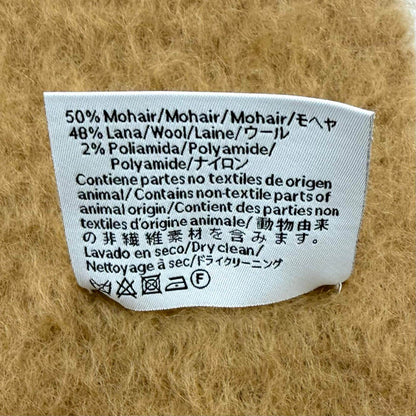 50% Mohair/Mohair/Mohair/モヘヤ
48% Lana/Wool/Laine/ウール
2% Poliamida/Polyamide/
Polyamide/ナイロン
Contiene partes no textiles de origen
animal/Contains non-textile parts of
animal origin/Contient des parties non
textiles d'origine animale/動物由来
の非繊維素材を含みます。
Lavado en seco/Dry clean/
Nettoyage à sec/ドライクリーニング
F